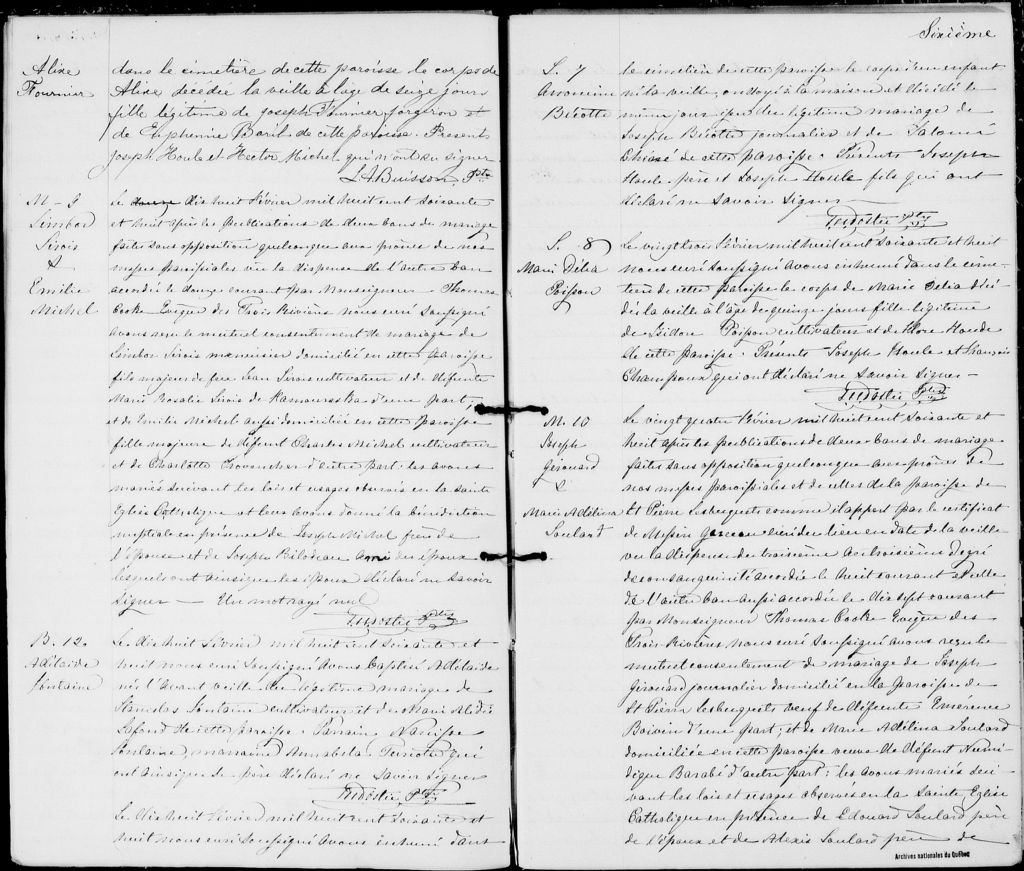 Alixe
Fournier
dans le cimetière de cette paroisse le corps de
Alixe décédée la veille à l'age de seize jours
fille légitime de joseph Fournier forgeron et
de Euphemie Baril de cette paroisse. Présents
joseph Houle et Hector Michel qui n'ont su signer
L A Buisson, Ptre
M - 9
Limbor
Sirois
&
Emilie
Michel
Le dix huit Février mil huit cent soixante
et huit après les publications de deux bans de mariage
faites sans opposition quelconque aux prônes de nos
messes paroissiales vu la dispense de l'autre ban
accordée le douze courant par Monseigneur Thomas
Cooke Evêque des Trois Rivières nous curé soussigné
avons reçu le mutuel consentement de mariage de
Limbor Sirois menuisier domicilié en cette paroisse
fils majeur de feu Jean Sirois cultivateur et de défunte
Marie Rosalie Sirois de Kamouraska d'une part;
et de Emilie Michel aussi domiciliée en cette paroisse
fille majeure de défunt Charles Michel cultivateur
et de Charlotte Provencher d'autre part: les avons
mariés suivant les lois et usages observés en la sainte
Eglise Catholique et leur avons donné la bénédiction
nuptiale en présence de Joseph Michel frère de
l'épouse et de Joseph Bilodeau ami de l'époux
lesquels ont ainsi que les époux déclaré ne savoir
signer — Un mot rayé nul
B. 12.
Adélaide
Fontaine
Le dix huit Février mil huit cent soixante et
huit nous curé soussigné avons baptisé Adélaide
née l'avant veille du légitime mariage de
Stanislas Fontaine cultivateur et de Marie Alidée
Lafond de cette paroisse. Parrain Narcisse
Fontaine marraine Annabela qui
ont ainsi que le père déclaré ne savoir signer
Le dix huit Février mil huit cent soixante et
huit nous curé soussigné avons inhumé dans
Sixième
S. 7
Anonime
Béotte
le cimetière de cette paroisse le corps d'un enfant
né la veille, ondoyé à la maison et décédé le
même jour issu du légitime mariage de
Joseph Béotte journalier et de Salomé
de cette paroisse. Présents Joseph
Houle père et Joseph Houle fils qui ont
déclaré ne savoir signer —
S. 8
Marie Délia
Poisson
Le vingt trois Février mil huit cent soixante et huit
nous curé soussigné avons inhumé dans le cime-
tière de cette paroisse le corps de Marie Delia décé-
dée la veille à l'âge de quinze jours fille légitime
de Isidore Poisson cultivateur et de Flore Houde
de cette paroisse. Présents Joseph Houle et François
Champoux qui ont déclaré ne savoir signer —
M. 10
Joseph
Girouard
&
Marie Adélina
Soulard
Le vingt quatre Février mil huit cent soixante et
huit après les publications de deux bans de mariage
faites sans opposition quelconque aux prônes de
nos messes paroissiales et de celles de la paroisse de
St Pierre Lesbecquets comme il appert par le certificat
de Messire curé de lieu en date de la veille
vu la dispense du troisième au troisième degré
de consanguinité accordée le huit courant et celle
de l'autre ban aussi accordée le dix sept courant
par Monseigneur Thomas Cooke Evêque des
Trois Rivières nous curé soussigné avons reçu le
mutuel consentement de mariage de Joseph
Girouard journalier domicilié en la paroisse de
St Pierre Lesbecquets veuf de défunte Emérence
Boivin d'une part; et de Marie Adélina Soulard
domiciliée en cette paroisse veuve de défunt Numi-
dique Barabé d'autre part: les avons mariés sui-
vant les lois et usages observés en la Sainte Eglise
Catholique en présence de Edouard Soulard père
de l'époux et de Alexis Soulard père de
Archives nationales du Québec